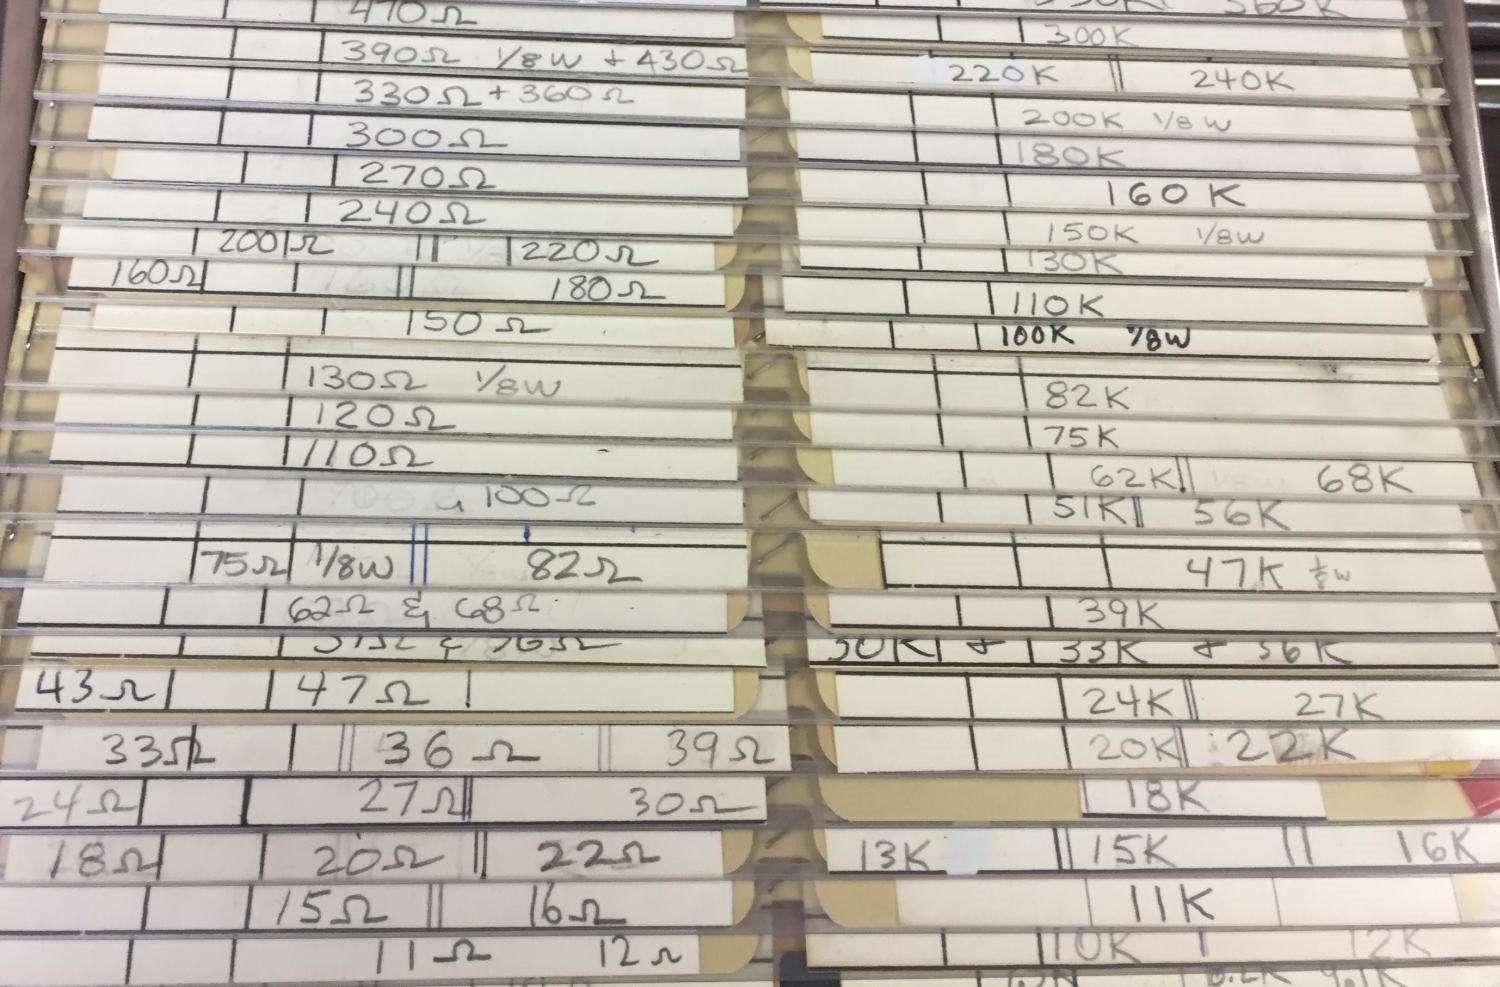 470Ω
390Ω 1/8W + 430Ω
330Ω + 360Ω
300Ω
270Ω
240Ω
200Ω 220Ω
160Ω 180Ω
150Ω
130Ω 1/8W
120Ω
110Ω
100Ω
75Ω 1/8W 82Ω
62Ω & 68Ω
51Ω & 56Ω
43Ω 47Ω
33Ω 36Ω 39Ω
24Ω 27Ω 30Ω
18Ω 20Ω 22Ω
15Ω 16Ω
11Ω 12Ω
360K
300K
220K 240K
200K 1/8W
180K
160K
150K 1/8W
130K
110K
100K 1/8W
82K
75K
62K 68K
51K 56K
47K 1/8W
39K
30K & 33K & 36K
24K 27K
20K 22K
18K
13K 15K 16K
11K
10K 12K
8.2K 9.1K